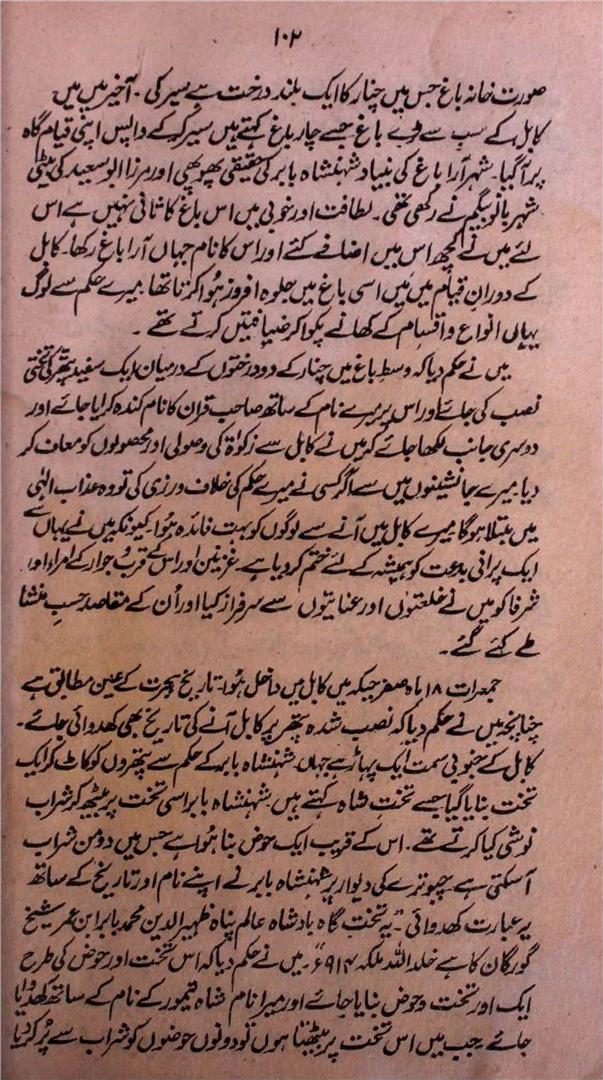 ۱۰۲
صورت خانہ باغ جس میں چنار کا ایک بلند درخت ہے سیر کی۔ آخیر میں میں
کابل کے سب سے بڑے باغ جسے چار باغ کہتے ہیں سیر کر کے واپس اپنی قیام گاہ
پر آ گیا۔ شہر آرا باغ کی بنیاد شہنشاہ بابر کی حقیقی پھوپھی اور مرزا ابو سعید کی بیٹی
شہر بانو بیگم نے رکھی تھی۔ لطافت اور خوبی میں اس باغ کا ثانی نہیں ہے اس
لئے میں نے کچھ اس میں اضافے کئے اور اس کا نام جہاں آرا باغ رکھا۔ کابل
کے دوران قیام میں میں اسی باغ میں جلوہ افروز ہوا کرتا تھا میرے حکم سے لوگ
یہاں انواع و اقسام کے کھانے پکوا کر ضیافتیں کرتے تھے۔
میں نے حکم دیا کہ وسط باغ میں چنار کے دو درختوں کے درمیان ایک سفید پتھر کی تختی
نصب کی جائے اور اس پر میرے نام کے ساتھ صاحب قران کا نام کندہ کرایا جائے اور
دوسری جانب لکھا جائے کہ میں نے کابل سے زکوٰۃ کی وصولی اور محصولوں کو معاف کر
دیا۔ میرے جانشینوں میں سے اگر کسی نے میرے حکم کی خلاف ورزی کی تو وہ عذاب الٰہی
میں مبتلا ہو گا میرے کابل میں آنے سے لوگوں کو بہت فائدہ ہوا۔ کیونکہ میں نے یہاں سے
ایک پرانی بدعت کو ہمیشہ کے لئے ختم کر دیا ہے۔ غزنین اور اس کے قرب و جوار کے امراء اور
شرفا کو میں نے خلعتوں اور عنایتوں سے سرفراز کیا اور اُن کے مقاصد حسب منشا
طے کئے گئے۔
جمعرات ۱۸ ماہ صفر جبکہ میں کابل میں داخل ہوا۔ تاریخ ہجرت کے عین مطابق ہے
چنانچہ میں نے حکم دیا کہ نصب شدہ پتھر پر کابل آنے کی تاریخ بھی کھدوائی جائے۔
کابل کے جنوبی سمت ایک پہاڑ ہے جہاں شہنشاہ بابر کے حکم سے پتھروں کو کاٹ کر ایک
تخت بنایا گیا جسے تخت شاہ کہتے ہیں شہنشاہ بابر اسی تخت پر بیٹھ کر شراب
نوشی کیا کرتے تھے۔ اس کے قریب ایک حوض بنا ہوا ہے جس میں دو من شراب
آ سکتی ہے چبوترے کی دیوار پر شہنشاہ بابر نے اپنے نام اور تاریخ کے ساتھ
یہ عبارت کھدوائی "یہ تخت گاہ بادشاہ عالم پناہ ظہیر الدین محمد بابر ابن عمر شیخ
گورگان کا ہے خلد اللہ ملکہ ۹۱۴ء"۔ میں نے حکم دیا کہ اس تخت اور حوض کی طرح
ایک اور تخت و حوض بنایا جائے اور میرا نام شاہ تیمور کے نام کے ساتھ کھدوایا
جائے جب میں اس تخت پر بیٹھتا ہوں تو دونوں حوضوں کو شراب سے پُر کر دیا